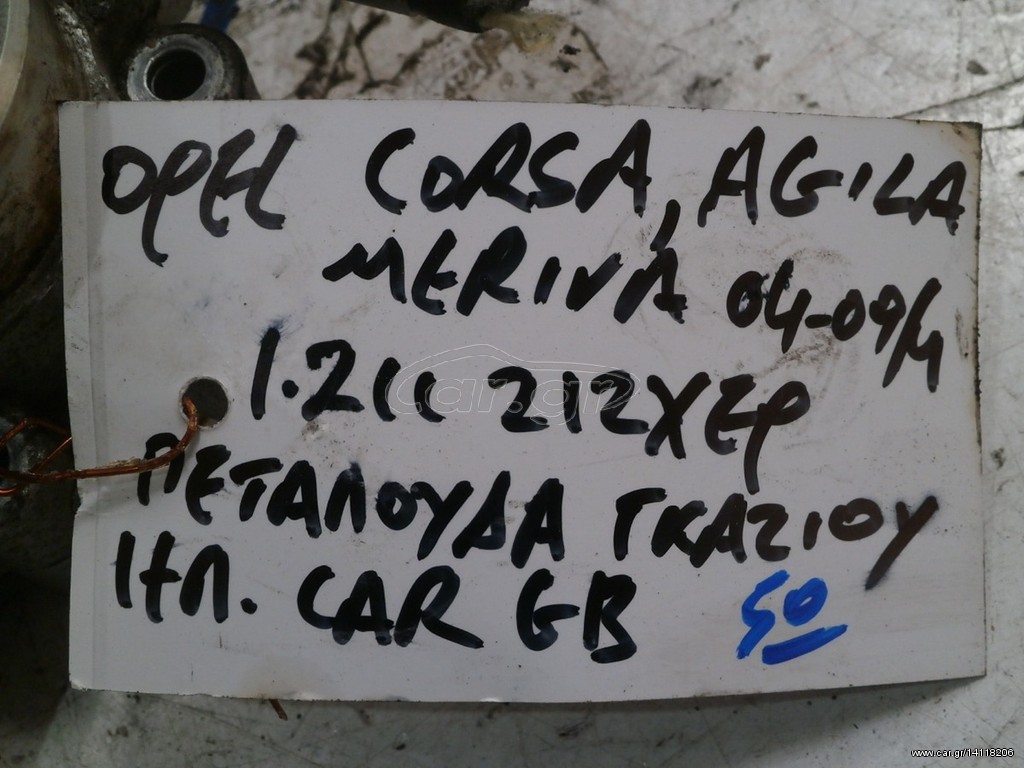 OPEL CORSA, AGILA
MERIVA 04-09/4
1.2CC Z12XEP
ΠΕΤΑΛΟΥΔΑ ΓΚΑΖΙΟΥ
ΙΗΛ. CAR GB 50
car.gr
www.car.gr/14118206